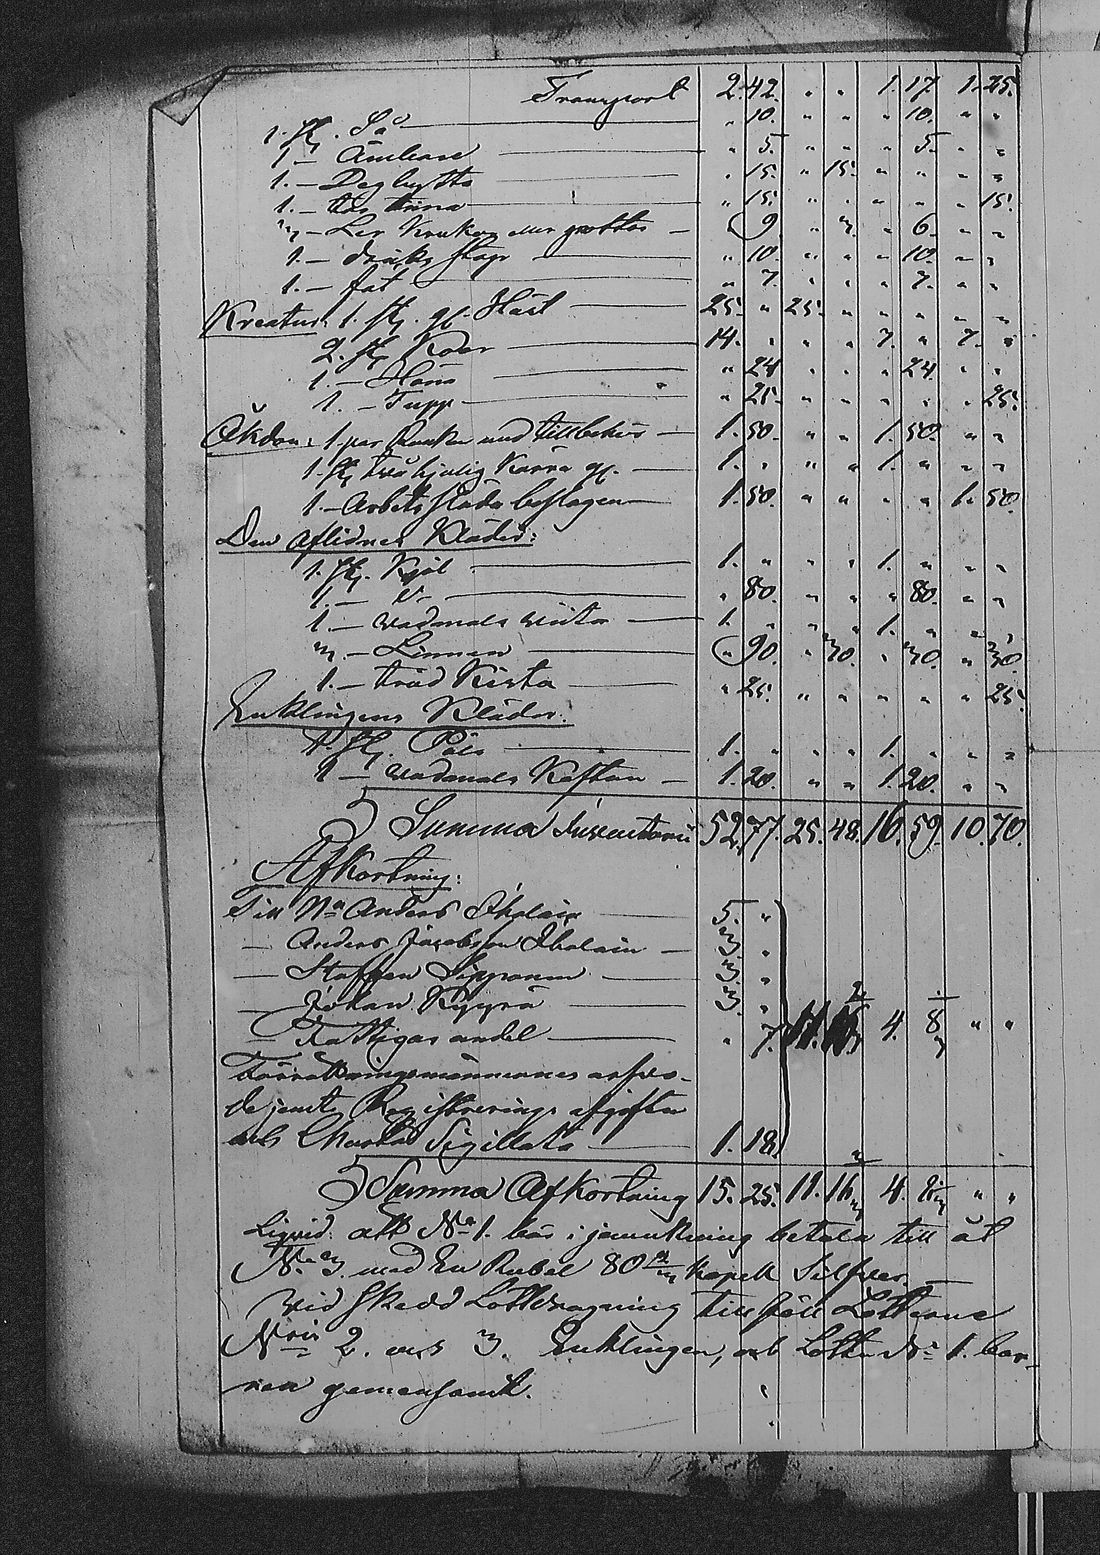 Transport 2. 42. " " 1. 17. 1. 25.
1. st. Så " 10. " " " 10. " "
1 — Ämbare " 5. " " " 5. " "
1. — Degbytta " 15. " 15. " " " "
1. — tina " 15. " " " " " 15.
3 — Ler Krukor eller grottor — " 9. " 3. " 6. " "
1. — dricks stop " 10. " " " 10. " "
1. — fat " 7. " " " 7. " "
Kreatur: 1. st. gl. Häst 25. " 25. " " " " "
2. st. Kor 14. " " " 7. " 7. "
1. — Höna " 24 " " " 24. " "
1. — Tupp " 25. " " " " " 25.
Åkdon: 1. par med tillbehör — 1. 50. " " 1. 50. " "
1. st. två hjulig Kärra gl. — 1. " " " 1. " " "
1. — Arbets släda beslagen — 1. 50. " " " " 1. 50.
Den Aflidnes Kläder:
1. st. Kjol 1. " " " 1. " " "
1. — D:o " 80. " " " 80. " "
1. — vadmals 1. " " " 1. " " "
3. — Linnen " 90. " 30. " 30. " 30
1. — träd Kista " 25. " " " " " 25.
Enklingens Kläder.
1. st. Päls 1. " " " 1. " " "
1 — vadmals Kaftan — 1. 20. " " 1. 20. " "
Summa Inventarii 52. 77. 25. 48. 16. 59. 10. 70.
Afkortning:
Till Anders 5. "
— Anders Jacobsson — 3. "
— Staffan 3. "
— Johan 3. "
— Fattigas andel " 7. 4. 8 " "
Förrättningsmännernes arfvo-
de jemte Registrerings afgiften
och Charta Sigillata 1. 18.
Summa Afkortning 15. 25. 11. 16 4. 8 " "
Liqvid. att No 1. bör i jemnkning betala till åt
No 3. med En Rubel 80 kopek Silfver —
Vid skedd Lottdragning till föll Lotterne
N:ris 2. och 3. Enklingen, och Lotten No 1. bar-
nen gemensamt.